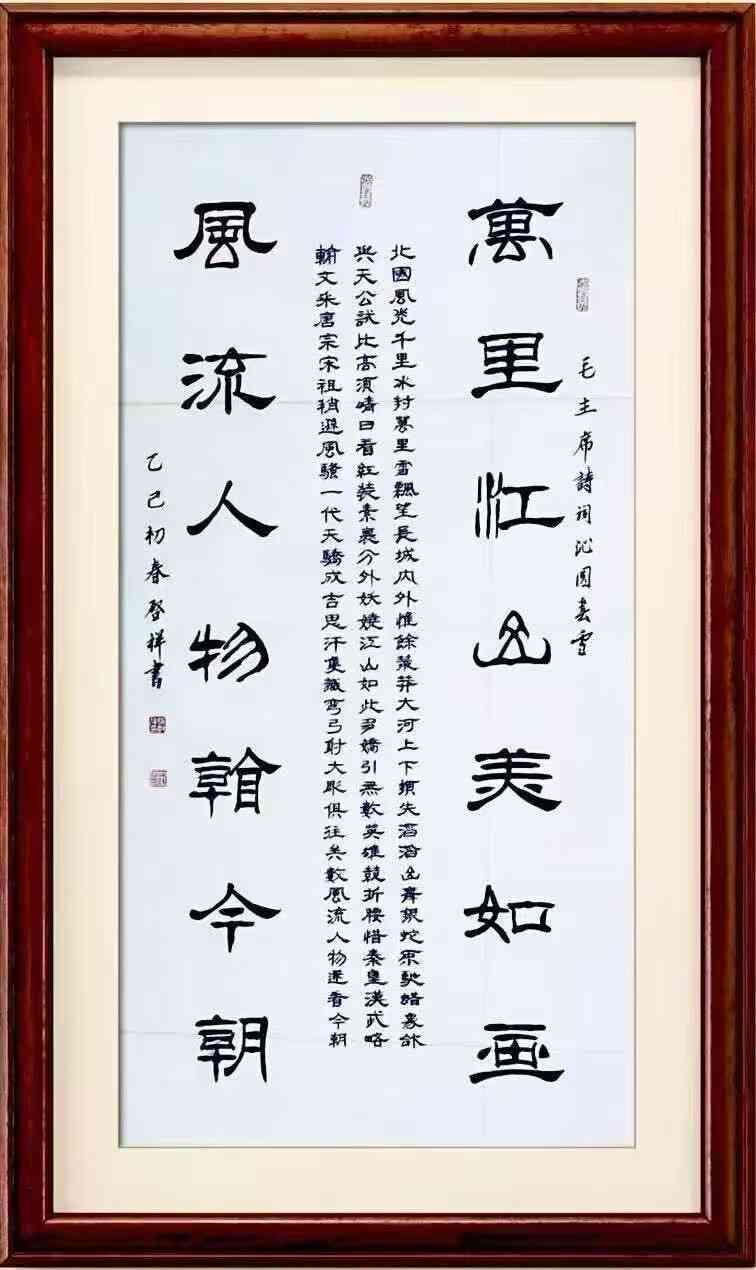 毛主席詩詞沁園春雪
萬里江山美如画
北國風光千里冰封萬里雪飄望長城内外惟餘莽莽大河上下頓失滔滔山舞銀蛇原馳蜡象欲
與天公試比高須晴日看紅裝素裹分外妖嬈江山如此多嬌引無數英雄競折腰惜秦皇漢武略
輸文采唐宗宋祖稍遜風騷一代天驕成吉思汗隻識彎弓射大彫俱往矣數風流人物還看今朝
風流人物看今朝
乙巳初春啓祥書